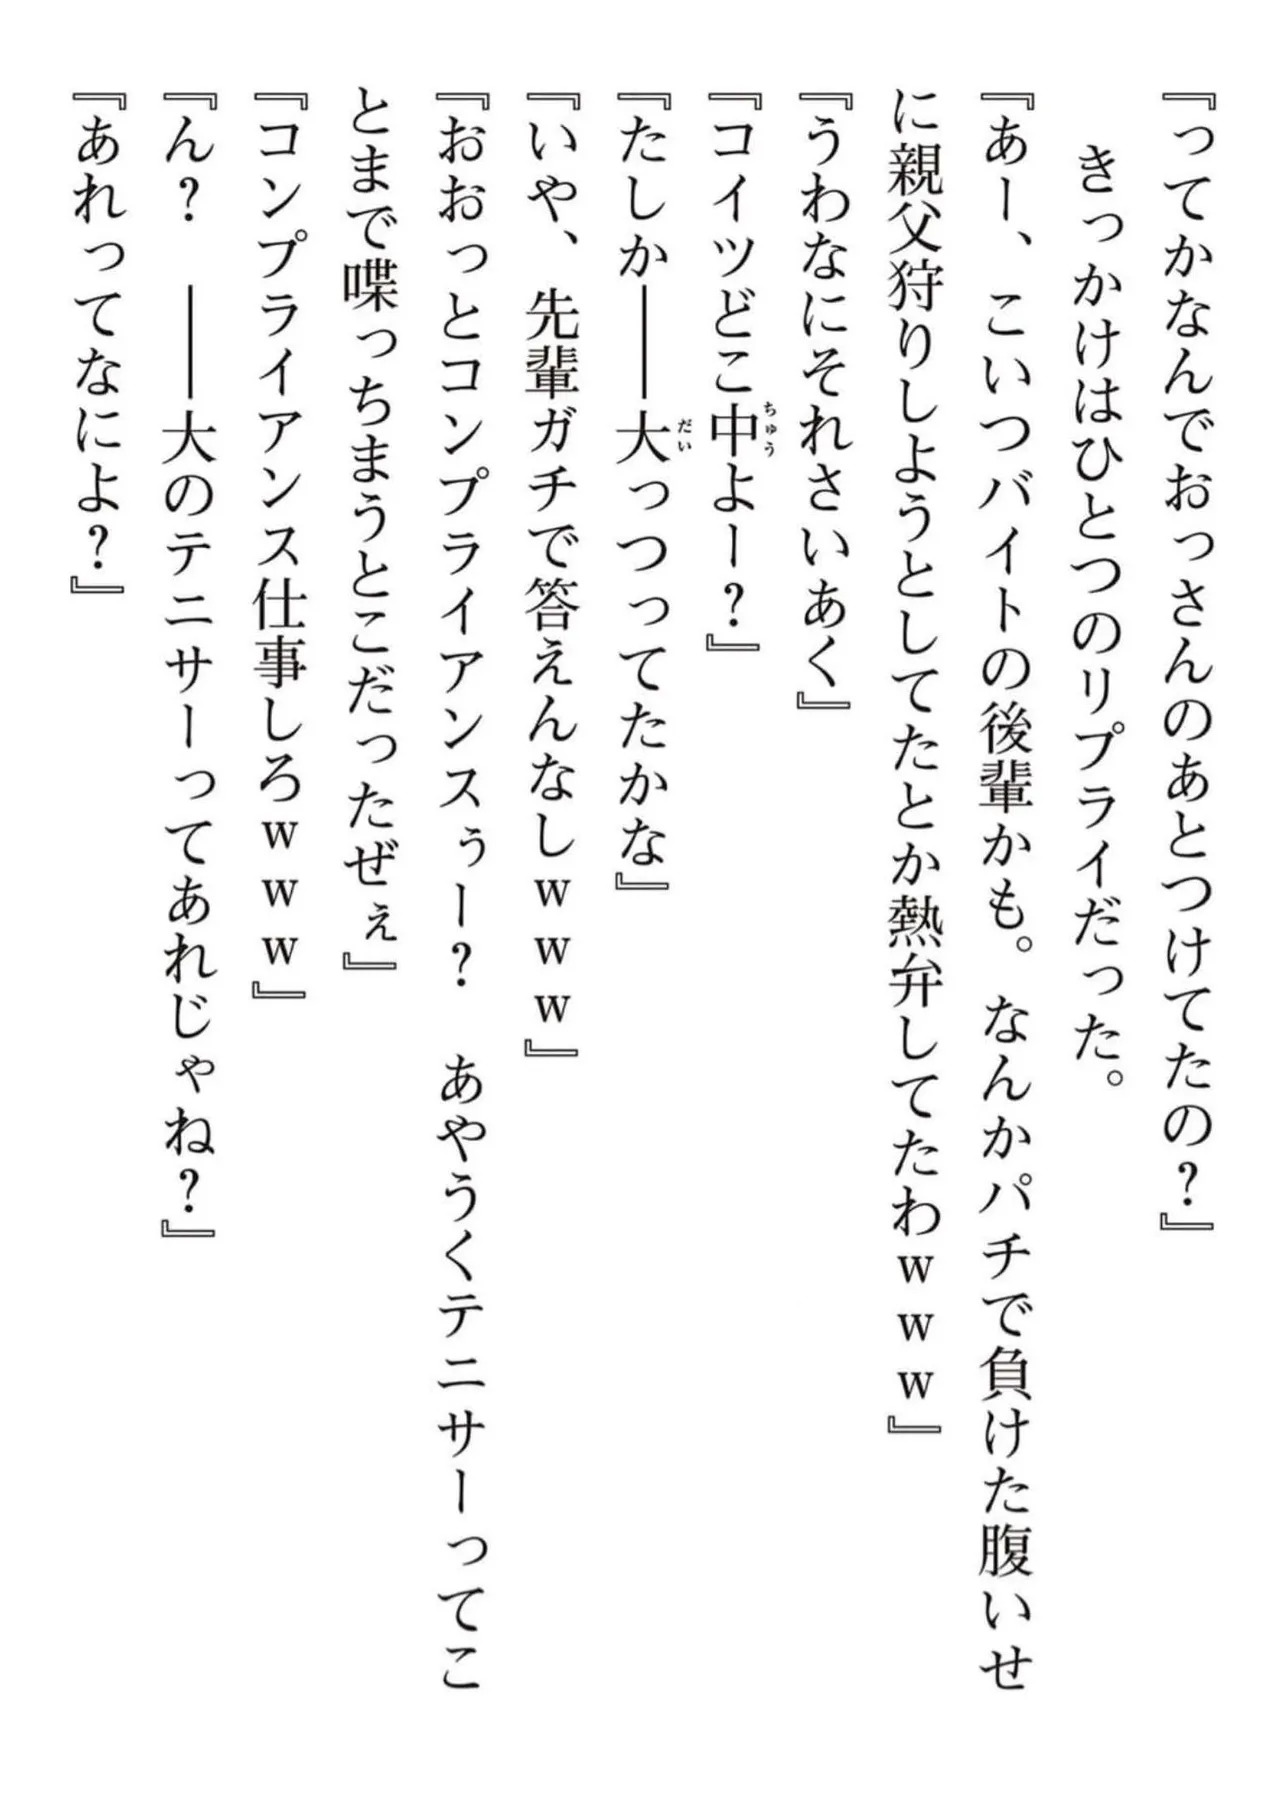 『ってかなんでおっさんのあとつけてたの？』
　きっかけはひとつのリプライだった。
『あー、こいつバイトの後輩かも。なんかパチで負けた腹いせ
に親父狩りしようとしてたとか熱弁してたわｗｗｗ』
『うわなにそれさいあく』
『コイツどこ中よー？』
『たしか――大っつってたかな』
『いや、先輩ガチで答えんなしｗｗｗ』
『おおっとコンプライアンスぅー？　あやうくテニサーってこ
とまで喋っちまうとこだったぜぇ』
『コンプライアンス仕事しろｗｗｗ』
『ん？　――大のテニサーってあれじゃね？』
『あれってなによ？』
ちゅう
だい